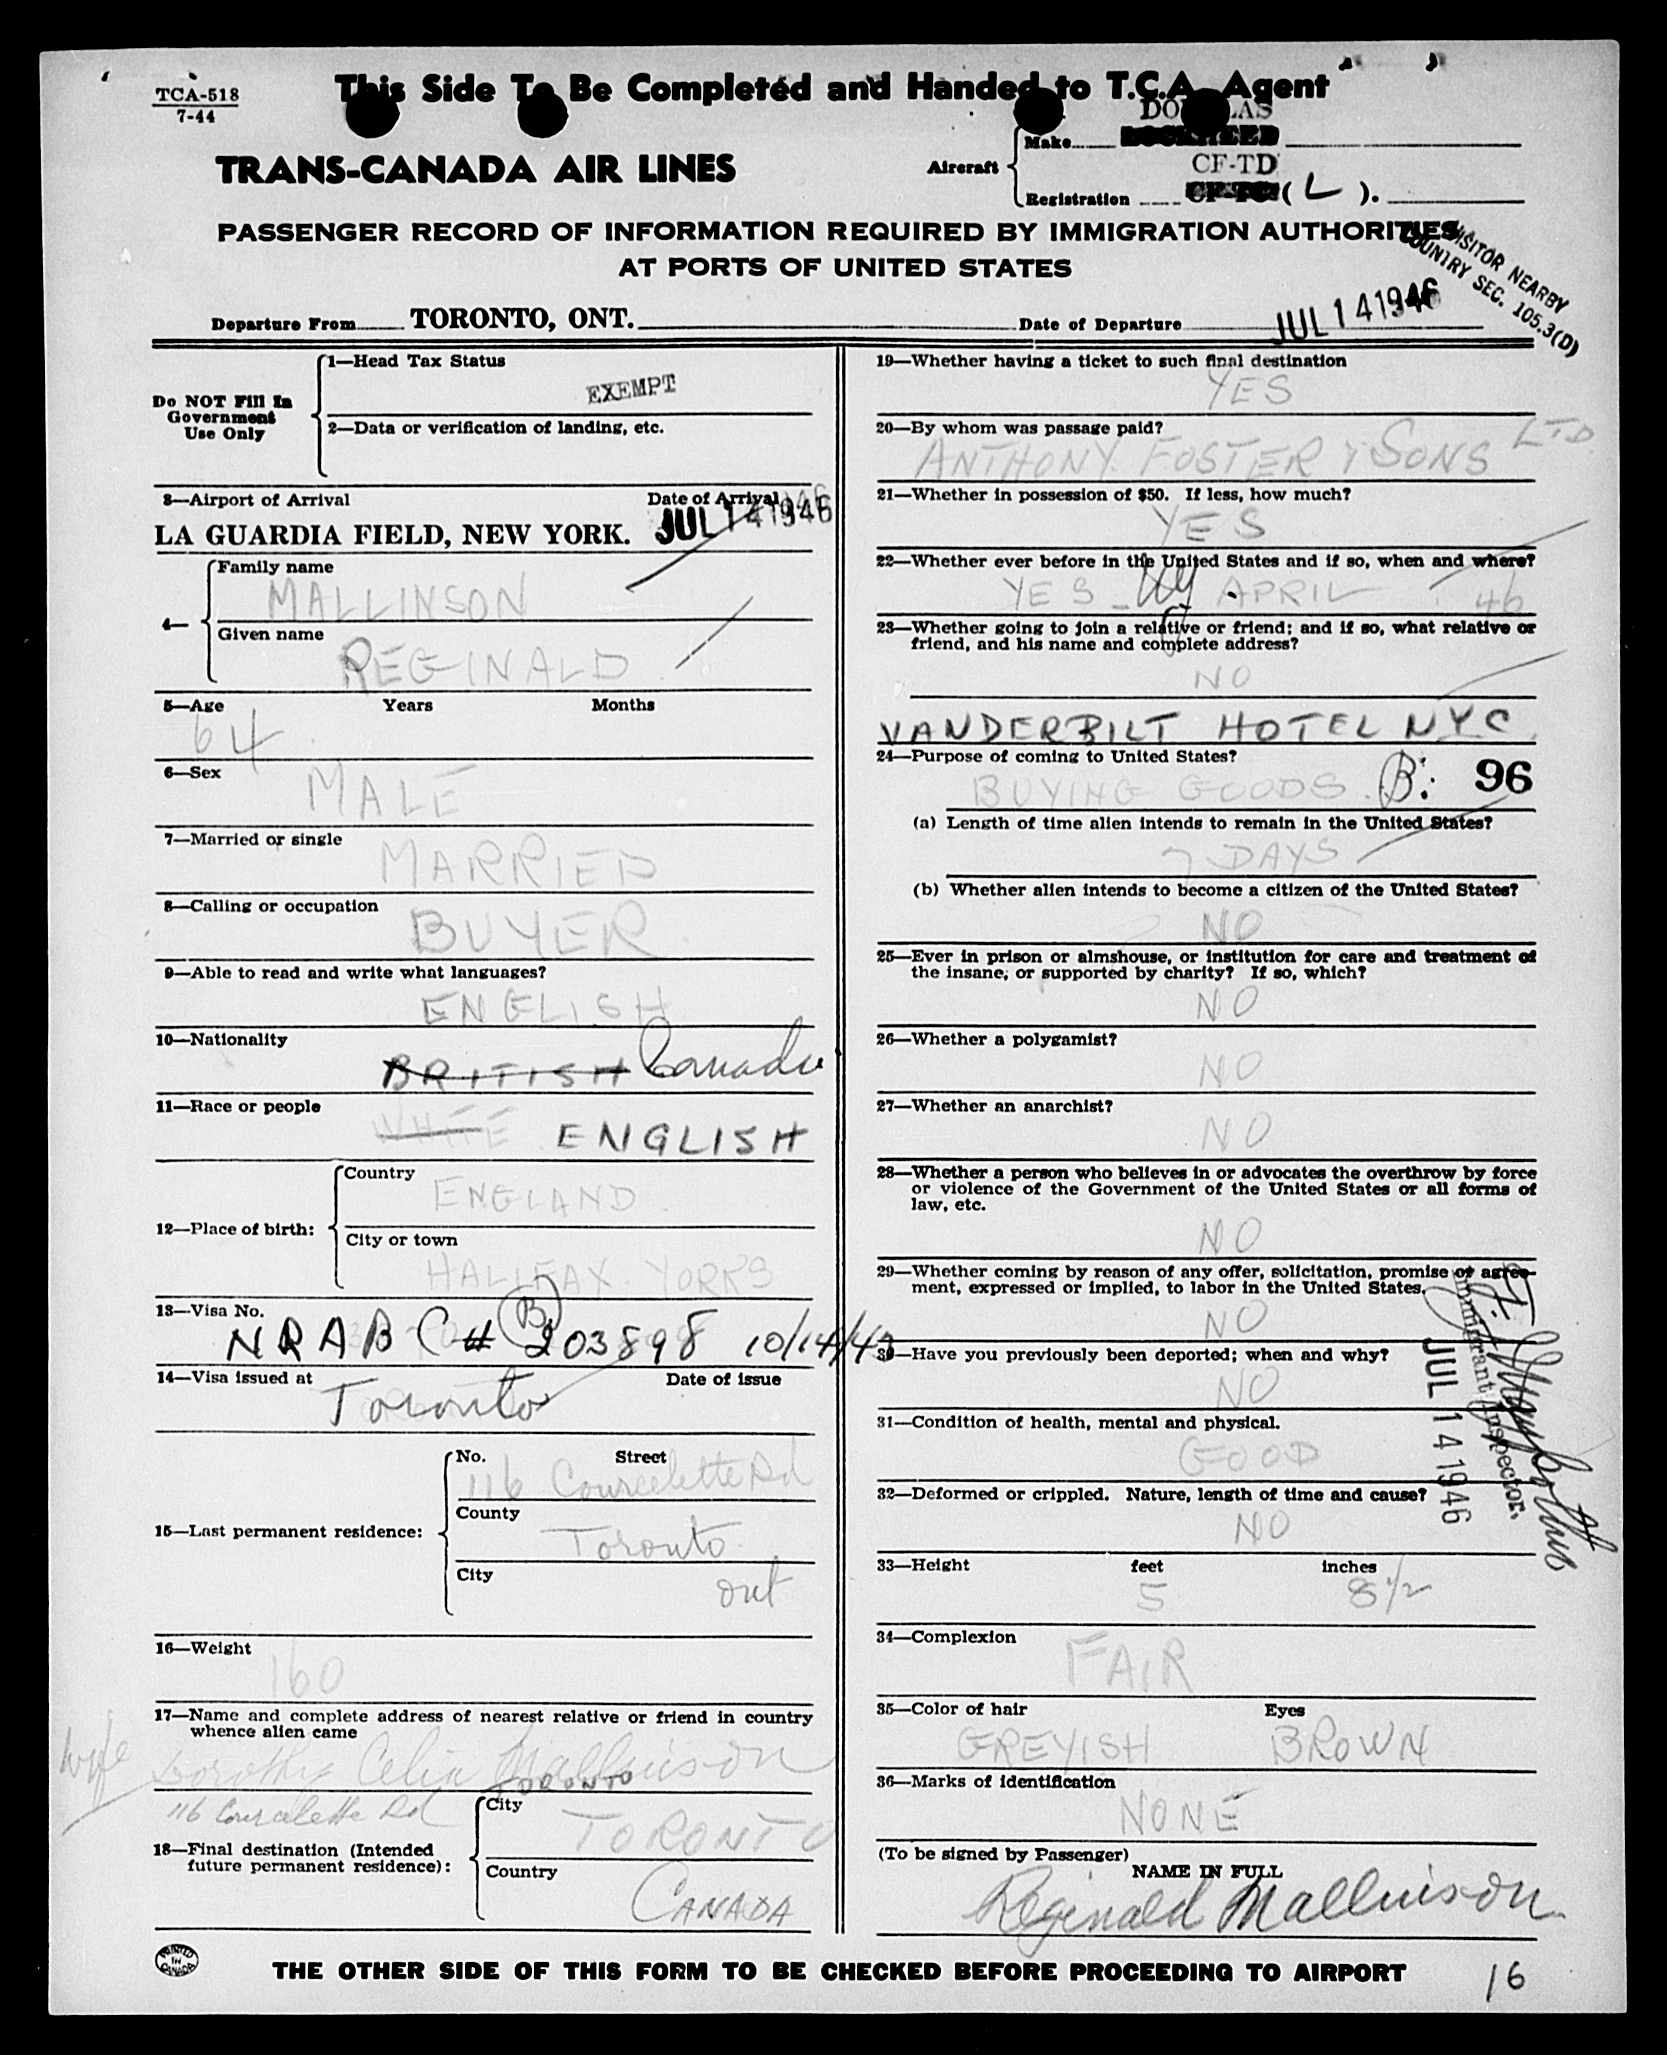 TCA-518
7-44
This Side To Be Completed and Handed to T.C.A. Agent
TRANS-CANADA AIR LINES
Aircraft
Make
DOUGLAS
CF-TD
Registration (L).
PASSENGER RECORD OF INFORMATION REQUIRED BY IMMIGRATION AUTHORITIES
AT PORTS OF UNITED STATES
VISITOR NEARBY
COUNTRY SEC. 105.3(D)
Departure From TORONTO, ONT.
Date of Departure JUL 14 1946
Do NOT Fill In
Government
Use Only
1—Head Tax Status
EXEMPT
2—Data or verification of landing, etc.
3—Airport of Arrival Date of Arrival
LA GUARDIA FIELD, NEW YORK. JUL 14 1946
4—
Family name
MALLINSON
Given name
REGINALD
5—Age Years Months
64
6—Sex
MALE
7—Married or single
MARRIED
8—Calling or occupation
BUYER
9—Able to read and write what languages?
ENGLISH
10—Nationality
BRITISH Canada
11—Race or people
WHITE ENGLISH
12—Place of birth:
Country
ENGLAND
City or town
HALIFAX YORKS
13—Visa No.
NRABC # 203898 10/14/43
(B)
14—Visa issued at Date of issue
Toronto
15—Last permanent residence:
No. Street
116 Courcelette Rd
County
Toronto
City
Ont
16—Weight
160
17—Name and complete address of nearest relative or friend in country
whence alien came
wife Dorothy Celia Mallinson
TORONTO
116 Courcelette Rd
18—Final destination (Intended
future permanent residence):
City
TORONTO
Country
CANADA
19—Whether having a ticket to such final destination
YES
20—By whom was passage paid?
ANTHONY FOSTER & SONS LTD
21—Whether in possession of $50. If less, how much?
YES
22—Whether ever before in the United States and if so, when and where?
YES - NY APRIL 46
23—Whether going to join a relative or friend; and if so, what relative or
friend, and his name and complete address?
NO
VANDERBILT HOTEL NYC
24—Purpose of coming to United States?
BUYING GOODS. (B): 96
(a) Length of time alien intends to remain in the United States?
7 DAYS
(b) Whether alien intends to become a citizen of the United States?
NO
25—Ever in prison or almshouse, or institution for care and treatment of
the insane, or supported by charity? If so, which?
NO
26—Whether a polygamist?
NO
27—Whether an anarchist?
NO
28—Whether a person who believes in or advocates the overthrow by force
or violence of the Government of the United States or all forms of
law, etc.
NO
29—Whether coming by reason of any offer, solicitation, promise or agree-
ment, expressed or implied, to labor in the United States.
NO
30—Have you previously been deported; when and why?
NO
JUL 14 1946
Immigrant Inspector.
31—Condition of health, mental and physical.
GOOD
32—Deformed or crippled. Nature, length of time and cause?
NO
33—Height feet inches
5 8 1/2
34—Complexion
FAIR
35—Color of hair Eyes
GREYISH BROWN
36—Marks of identification
NONE
(To be signed by Passenger)
NAME IN FULL
Reginald Mallinson
PRINTED
IN
CANADA
THE OTHER SIDE OF THIS FORM TO BE CHECKED BEFORE PROCEEDING TO AIRPORT
16